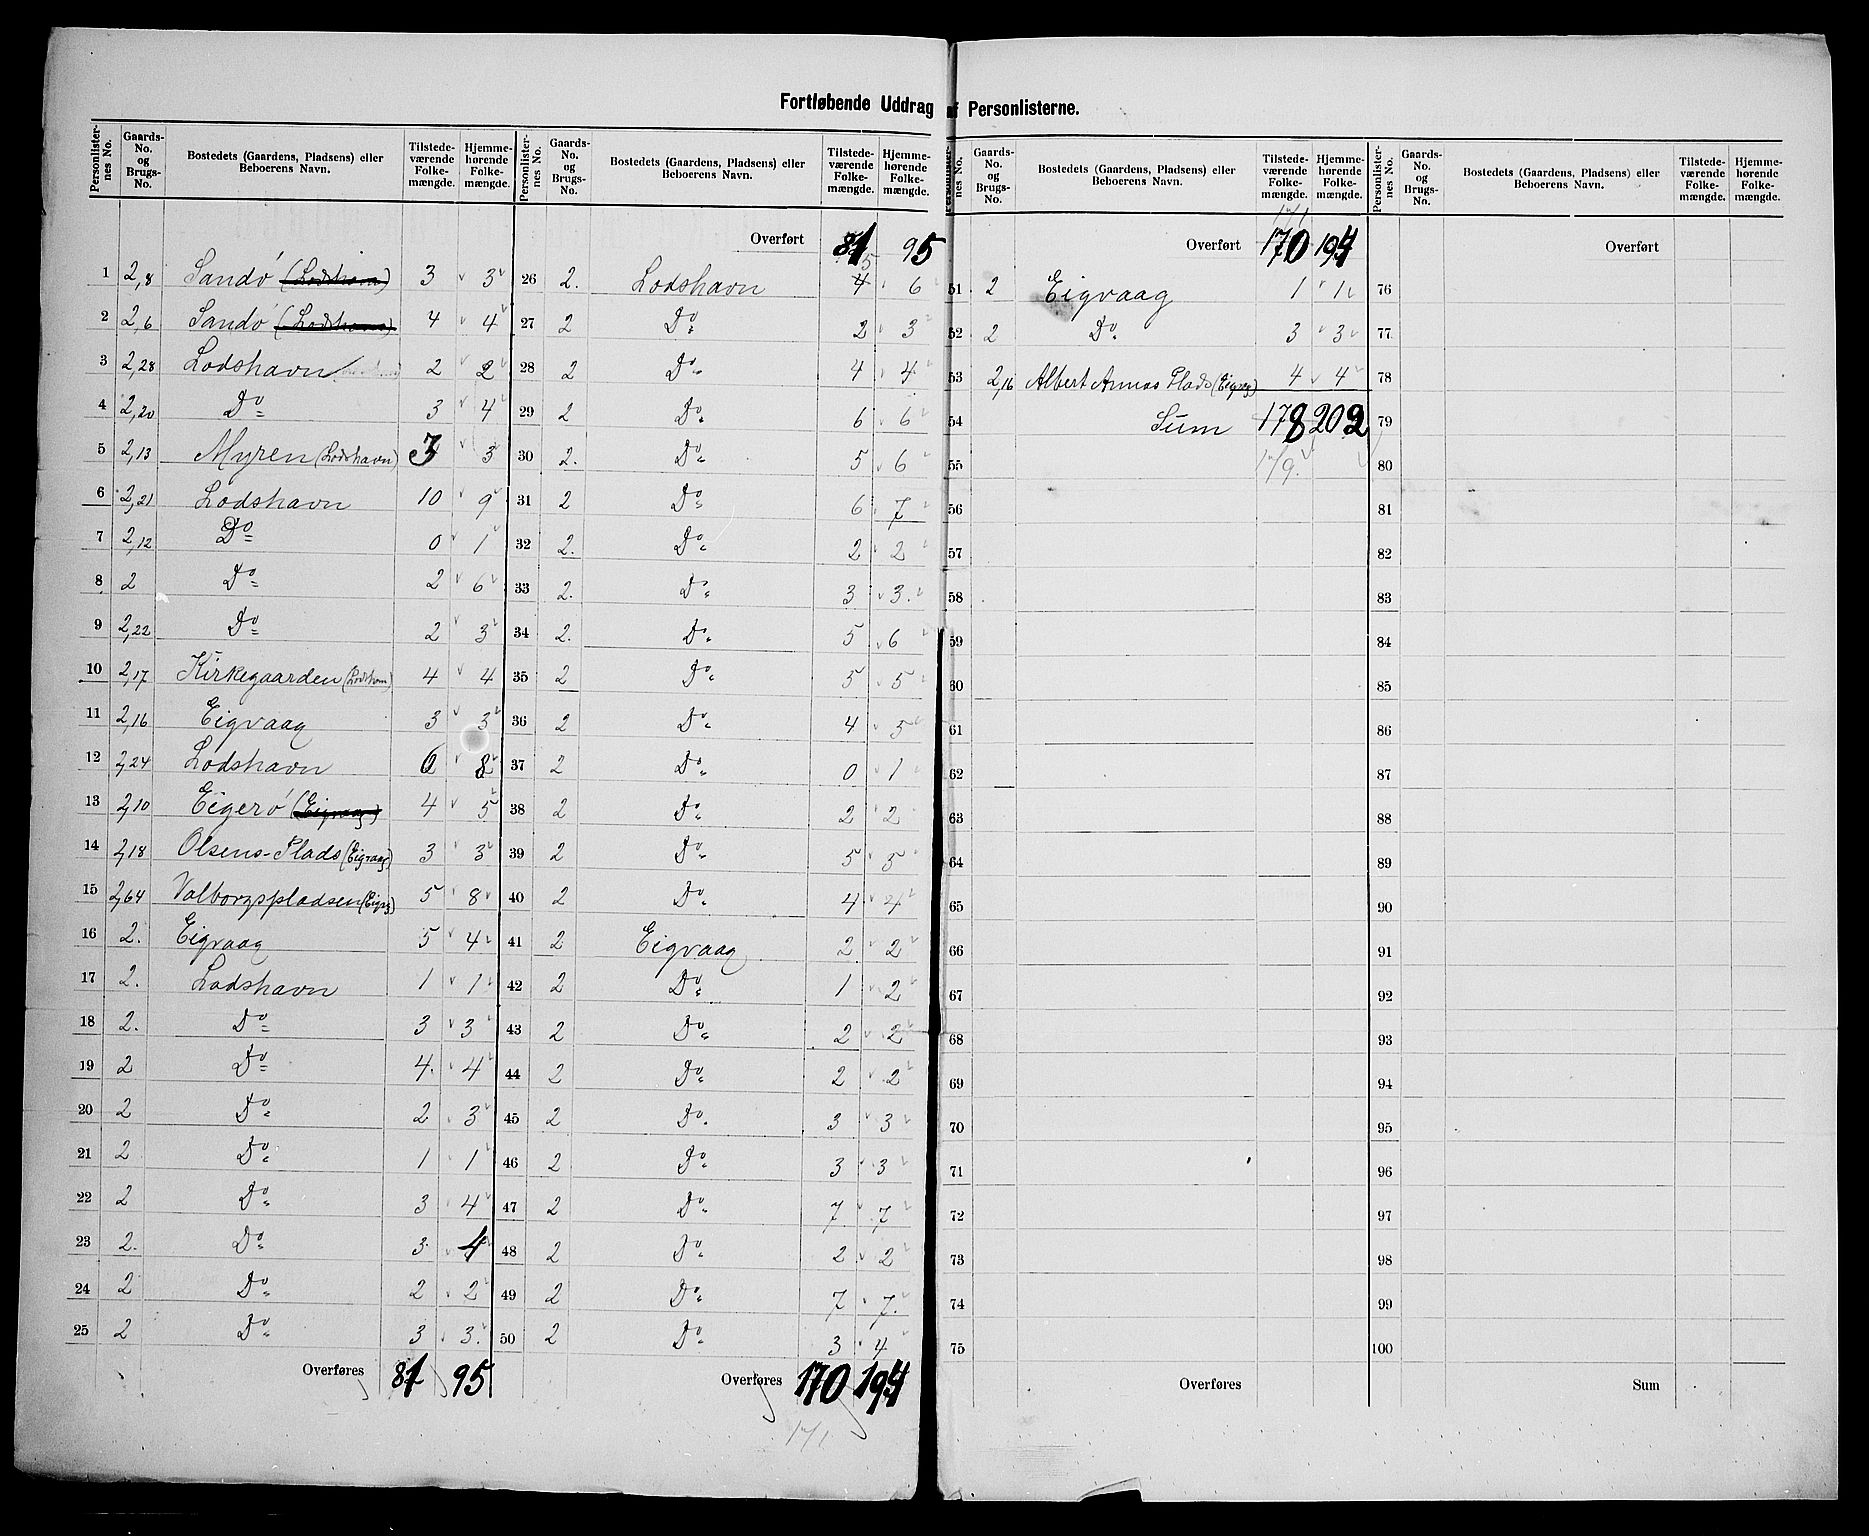 Fortløbende Uddrag af Personlisterne.
Personlister-nes No. | Gaards-No. og Brugs-No. | Bostedets (Gaardens, Pladsens) eller Beboerens Navn. | Tilstede-værende Folke-mængde. | Hjemme-hørende Folke-mængde.
1 2,8 Sandø (Lodshavn) 3 3
2 2,6 Sandø (Lodshavn) 4 4
3 2,28 Lodshavn 2 2
4 2,20 Do 3 4
5 2,13 Myren (Lodshavn) 3 3
6 2,21 Lodshavn 10 9
7 2,12 Do 0 1
8 2 Do 2 6
9 2,22 Do 2 3
10 2,17 Kirkegaarden (Lodshavn) 4 4
11 2,16 Eigvaag 3 3
12 2,24 Lodshavn 6 8
13 2,10 Eigerø (Eigvaag) 4 5
14 2,18 Olsens-Plads (Eigvaag) 3 3
15 2,64 Valborgspladsen (Eigvg) 5 8
16 2. Eigvaag 5 4
17 2. Lodshavn 1 1
18 2. Do 3 3
19 2 Do 4 4
20 2 Do 2 3
21 2 Do 1 1
22 2 Do 3 4
23 2. Do 3 4
24 2 Do 2 2
25 2 Do 3 3
Overføres 81 95
Personlister-nes No. | Gaards-No. og Brugs-No. | Bostedets (Gaardens, Pladsens) eller Beboerens Navn. | Tilstede-værende Folke-mængde. | Hjemme-hørende Folke-mængde.
Overført 81 95
5
26 2. Lodshavn 4 6
27 2 Do 2 3
28 2 Do 4 4
29 2 Do 6 6
30 2. Do 5 6
31 2 Do 6 7
32 2. Do 2 2
33 2. Do 3 3
34 2. Do 5 6
35 2 Do 5 5
36 2 Do 4 5
37 2 Do 0 1
38 2 Do 2 2
39 2 Do 5 5
40 2 Do 4 4
41 2 Eigvaag 2 2
42 2 Do 1 2
43 2 Do 2 2
44 2 Do 2 2
45 2 Do 3 3
46 2 Do 3 3
47 2 Do 7 7
48 2 Do 2 2
49 2 Do 7 7
50 2 Do 3 4
Overføres 170 194
171
Personlister-nes No. | Gaards-No. og Brugs-No. | Bostedets (Gaardens, Pladsens) eller Beboerens Navn. | Tilstede-værende Folke-mængde. | Hjemme-hørende Folke-mængde.
171
Overført 170 194
51 2 Eigvaag 1 1
52 2 Do 3 3
53 2,16 Albert Annas Plads (Eigvg) 4 4
54 Sum 178 202
55 179.
56
57
58
59
60
61
62
63
64
65
66
67
68
69
70
71
72
73
74
75
Overføres
Personlister-nes No. | Gaards-No. og Brugs-No. | Bostedets (Gaardens, Pladsens) eller Beboerens Navn. | Tilstede-værende Folke-mængde. | Hjemme-hørende Folke-mængde.
Overført
76
77
78
79
80
81
82
83
84
85
86
87
88
89
90
91
92
93
94
95
96
97
98
99
100
Sum